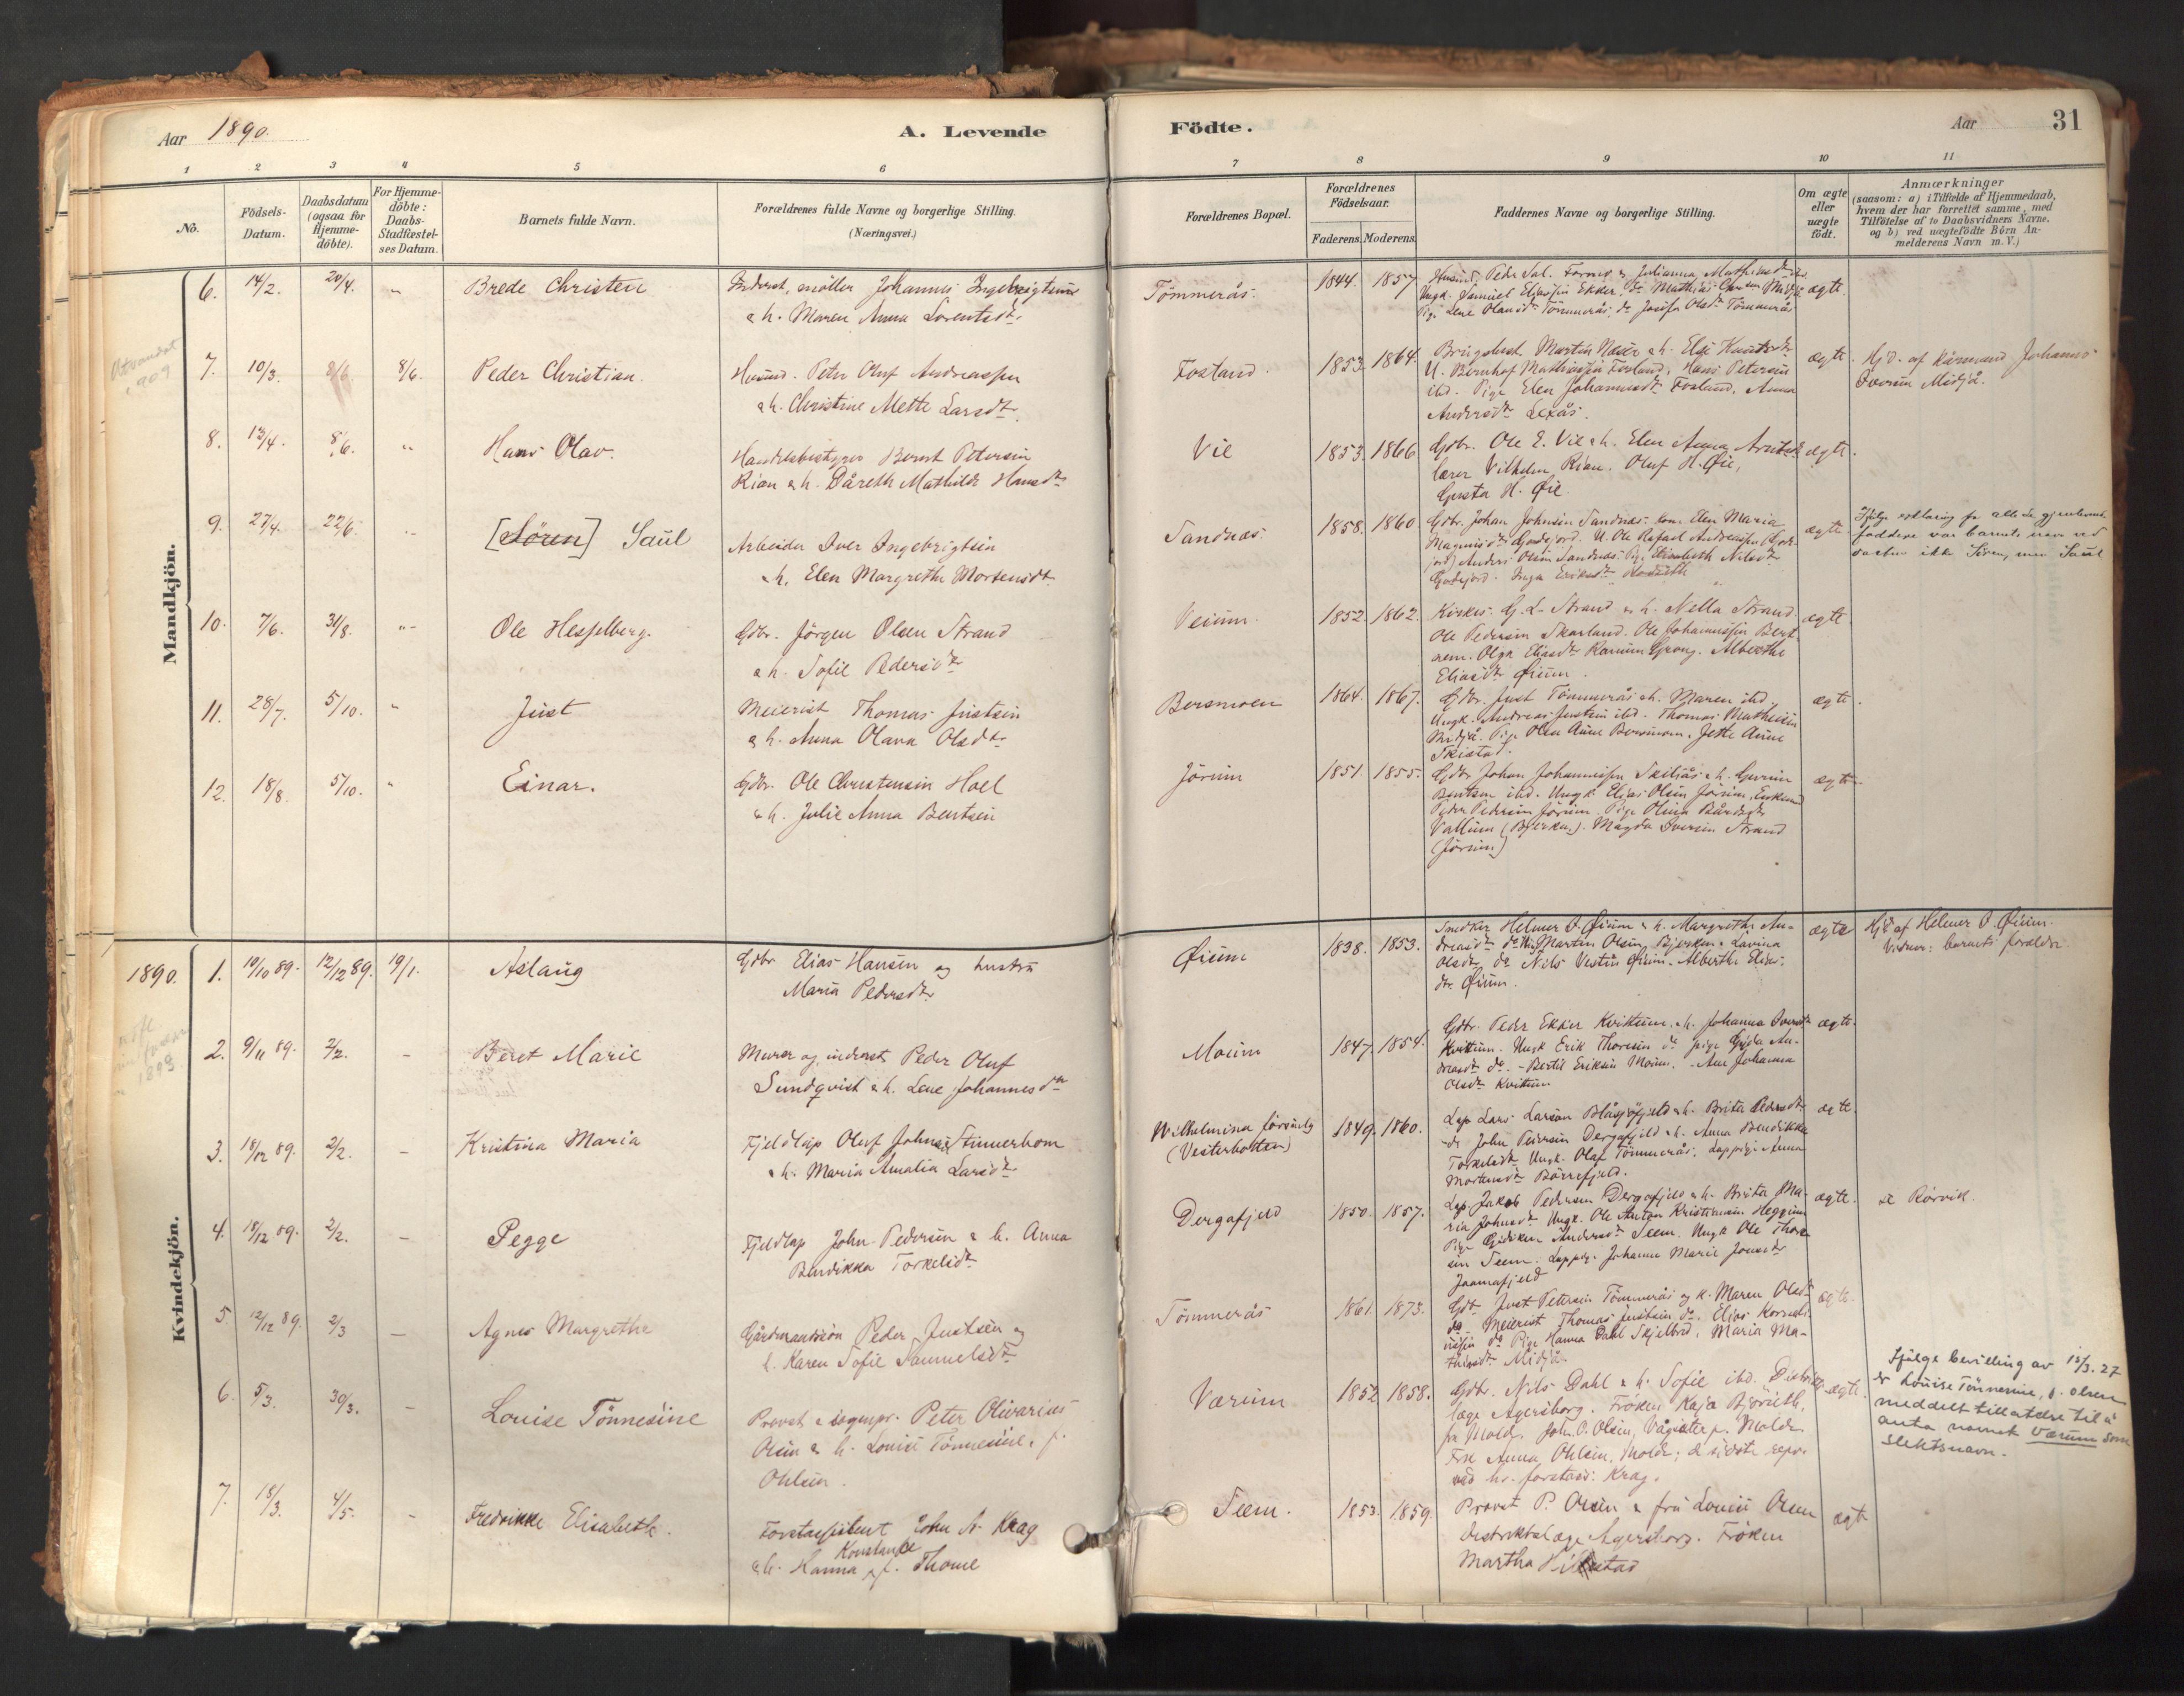 Aar 1890.
A. Levende
Födte.
Aar
31
1
2
3
4
5
6
7
8
9
10
11
No.
Födsels-
Datum.
Daabsdatum
(ogsaa for
Hjemme-
döbte).
For Hjemme-
döbte:
Daabs-
Stadfæstel-
ses Datum.
Barnets fulde Navn.
Forældrenes fulde Navne og borgerlige Stilling.
(Næringsvei.)
Forældrenes Bopæl.
Forældrenes
Födselsaar.
Faderens. Moderens.
Faddernes Navne og borgerlige Stilling.
Om ægte
eller
uægte
födt.
Anmærkninger
(saasom: a) i Tilfælde af Hjemmedaab,
hvem der har forrettet samme, med
Tilföielse af to Daabsvidners Navne.
og b) ved uægtefödte Börn An-
melderens Navn m. V.)
Mandkjön.
6. 14/2. 20/4. " Brede Christen
Inderst, møller Johannes Ingebrigtsen
& h. Maren Anna Lorentsdtr.
Tömmerås. 1844. 1857
Ungk. Samuel Eliassen Ekker, do Mathias
Pige Lene Olausdtr Tömmerås, do Josefa Olsdtr Tömmerås
ægte.
Utvandret
1909
7. 10/3. 8/6. 8/6. Peder Christian.
Husmd. Peter Oluf Andreassen
& h. Christine Mette Larsdtr.
Fosland. 1853. 1864.
Brugsbest. Martin Næss & h. Else Knutsdtr
U. Bernhof Mathiassen Fosland, Hans Petersen
ibd. Pige Elen Johannesdtr Fosland, Anna
Andersdtr Lexås.
ægte.
Hjd. af Johannes
Iversen Midjå.
8. 13/4. 8/6. " Hans Olav.
Handelsbestyrer Bernt Petersen
Rian & h. Dåreth Mathilde Hansdtr
Vie 1853. 1866
Gdbr. Ole E. Vie & h. Elen Anna
lærer Vilhelm Rian. Oluf H. Øie,
Gusta H. Øie.
ægte.
9. 27/4. 22/6. " [Sören] Saul
Arbeider Iver Ingebrigtsen
& h. Elen Margrethe Mortensdtr.
Sandnæs. 1858. 1860.
Gdbr. Johan Johnsen Sandnæs. kone Elen Maria
Magnusdtr Godejord. U. Ole Rafael Andreassen Gode-
jord, Anders Olsen Sandnæs. Pige Elisabeth Nilsdtr
Godejord. Inga Eriksdtr
ægte
Ifølge erklæring fra alle de gjenlevende
faddere var barnets navn ved
daaben ikke Sören, men Saul
10. 7/6. 31/8. " Ole Hesselberg.
Gdbr. Jörgen Olsen Strand
& h. Sofie Pedersdtr
Veium. 1852. 1862.
Kirkes. G. L. Strand & h. Nella Strand
Ole Pedersen Skarland. Ole Johannessen Bert
nem. Olga Eliasdtr Ranum Grong. Alberthe
Eliasdtr Øium.
ægte.
11. 28/7. 5/10. " Just
Meierist Thomas Justsen
& h. Anna Olava Olsdtr
Bersmoen 1864. 1867.
Gdbr. Just Tömmerås & h. Maren ibd.
Ungk. Andreas Justsen ibd. Thomas Mathisen
Midjå. Pige Olea Aune Bersmoen. Jette Aune
Skistad.
ægte.
12. 18/8. 5/10. " Einar.
Gdbr. Ole Christensen Hoel
& h. Julie Anna Bentsen
Jörum 1851. 1855.
Gdbr Johan Johannessen Skiljås & h. Gurine
Bentsen ibd. Ungk. Elias Olsen Jörum, Enkemd
Peder Pedersen Jörum. Pige Olina Bårdsdtr
Vallum (Bjerken). Magda Iversen Strand
(Jörum)
ægte.
Kvindekjön.
1890. 1. 19/10 89. 12/12 89. 19/1. Aslaug
Gdbr Elias Hansen og hustru
Maria Pedersdtr
Øium 1838. 1853.
Snedker Helmer O. Øium & h. Margrethe An-
dreasdtr do Martin Olsen Bjerken & Lavina
Olsdtr do Nils Vestin Øium. Alberthe Elias-
dtr. Øium.
ægte
Hjd af Helmer O. Øium.
Vidner: barnets forældre.
1893
2. 9/11 89. 2/2. – Beret Marie
Murer og inderst Peder Oluf
Sundqvist & h. Lene Johannesdtr
Moum 1847. 1854.
Gdbr. Peder Ekker Kvittum & h. Johanna Iversdtr
Kvittum. Ungk Erik Thoresen do pige Gjida An-
dreasdtr do. – Bertil Eriksen Moum. – Ane Johanna
Olsdtr Kvittum
ægte.
3. 18/12 89. 2/2. – Kristina Maria
Fjeldlap Oluf Johnsen Stinnerbom
& h. Maria Amalia Larsdtr
Wilhelmina församl.
(Vesterbotten) 1849. 1860.
Lap Lars Larsson Blåsjöfjeld & h. Brita Pedersdtr
do John Pedersen Dergafjeld & h. Anna Bendikka
Torkelsdtr Ungk. Olaf Tömmerås. Lappige Anna
Mortensdtr Börrefjeld.
ægte.
4. 18/12 89. 2/2. – Pegge
Fjeldlap John Pedersen & h. Anna
Bendikka Torkelsdtr
Dergafjeld 1850. 1857.
Lap Jakob Pedersen Dergafjeld & h. Brita Ma-
ria Johnsdtr Ungk. Ole Anton Kristiansen Heggum
Pige Gidiken Andersdtr Seem. Ungk Ole Thor
sen Seem. Lappige. Johanna Marie Jonsdtr
Jaamafjeld
ægte.
Rörvik.
5. 12/12 89. 2/3 – Agnes Margrethe
Gårdmandssön Peder Justsen og
h. Karen Sofie Samuelsdtr
Tömmerås 1861. 1873.
Gdbr. Just Petersen Tömmerås og h. Maren Olsdtr
do Meierist Thomas Justsen do. Elias Korneli-
ussen do Pige Hanna Dahl Skjelbred, Maria Ma-
thisdtr Midjå.
ægte.
6. 5/3. 30/3. – Louise Tönnesine
Provst & sognepr. Peter Olivarius
Olsen & h. Louise Tönnesine, f.
Ohlsen.
Værum 1852 1858.
Gdbr. Nils Dahl & h. Sofie ibd. Distrikts-
læge Agersborg. Fröken Kaja Björöeth,
fra Molde, John P. Olsen, Vågsæter pr. Molde
Frk Anna Ohlsen, Molde; de sidste repr.
ved hr. forstass. Krag.
ægte.
Ifølge bevilling av 12/3. 27
er Louise Tönnesine, f. Olsen
meddelt tillatelse til å
anta navnet Værum som
slektsnavn.
7. 18/3. 4/5. – Fredrikke Elisabeth.
Forstassistent John A. Krag
& h. Hanna Konstance f. Thome
Seem. 1853. 1859.
Provst P. Olsen & fru Louise Olsen
distriktslæge Agersborg. Frøken
Martha Hifstad
ægte